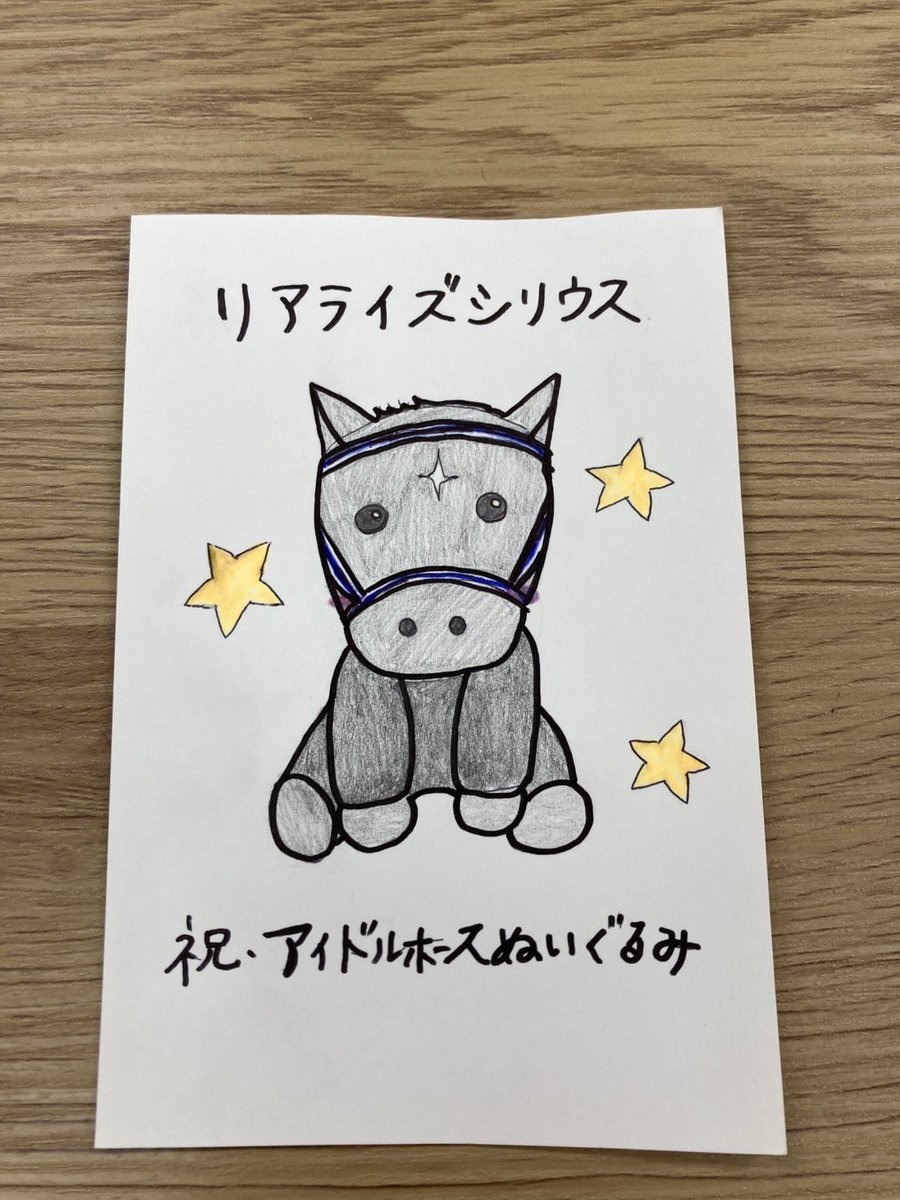 リアライズシリウス
祝・アイドルホースぬいぐるみ